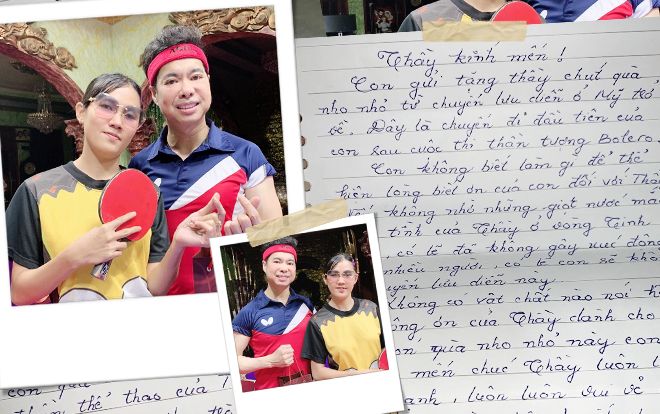 Thầy kính mến!
Con gửi tặng thầy chút quà
nho nhỏ từ chuyến lưu diễn ở Mỹ trở
về. Đây là chuyến đi đầu tiên của
con sau cuộc thi thần tượng Bolero.
Con không biết làm gì để thể
hiện lòng biết ơn của con đối với Thầ
không nhờ những giọt nước mắ
tình của Thầy ở vòng Tình
có lẽ đã không gây xúc động
nhiều người, có lẽ con sẽ khô
uyến lưu diễn này.
không có vật chất nào nói h
ông ơn của Thầy dành cho
on quà nho nhỏ này con
mến chúc Thầy luôn l
ạnh, luôn luôn vui vẻ
con quà
thần thể thao của T